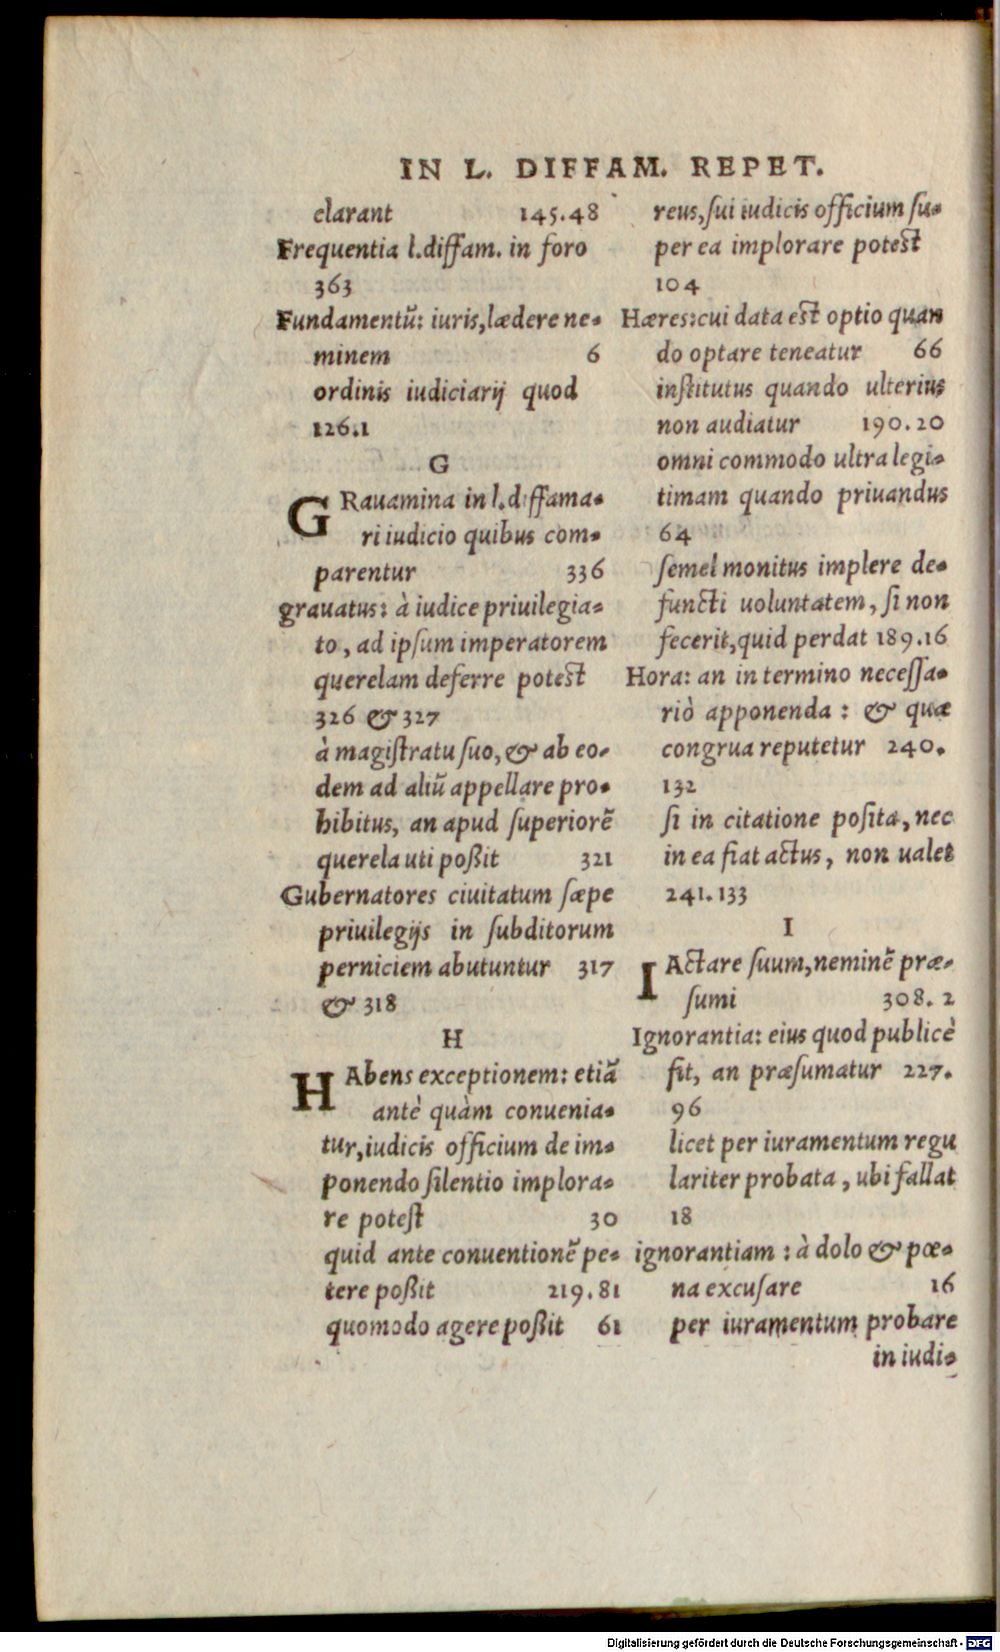 IN L. DIFFAM. REPET.
clarant 145.48
Frequentia l.diffam. in foro
363
Fundamentũ: iuris,lædere ne-
minem 6
ordinis iudiciarij quod
126.1
G
GRauamina in l.diffama-
ri iudicio quibus com-
parentur 336
grauatus: à iudice priuilegia-
to, ad ipſum imperatorem
querelam deferre poteſt
326 & 327
à magiſtratu ſuo, & ab eo-
dem ad aliũ appellare pro-
hibitus, an apud ſuperiorẽ
querela uti poßit 321
Gubernatores ciuitatum ſæpe
priuilegijs in ſubditorum
perniciem abutuntur 317
& 318
H
HAbens exceptionem: etiã
antè quàm conuenia-
tur,iudicis officium de im-
ponendo ſilentio implora-
re poteſt 30
quid ante conuentionẽ pe-
tere poßit 219.81
quomodo agere poßit 61
reus,ſui iudicis officium ſu-
per ea implorare poteſt
104
Hæres:cui data eſt optio quan
do optare teneatur 66
inſtitutus quando ulterius
non audiatur 190.20
omni commodo ultra legi-
timam quando priuandus
64
ſemel monitus implere de-
functi uoluntatem, ſi non
fecerit,quid perdat 189.16
Hora: an in termino neceſſa-
riò apponenda: & quæ
congrua reputetur 240.
132
ſi in citatione poſita, nec
in ea fiat actus, non ualet
241.133
I
IActare ſuum,neminẽ præ-
ſumi 308. 2
Ignorantia: eius quod publicè
fit, an præſumatur 227.
96
licet per iuramentum regu
lariter probata, ubi fallat
18
ignorantiam: à dolo & pœ-
na excuſare 16
per iuramentum probare
in iudi-
Digitalisierung gefördert durch die Deutsche Forschungsgemeinschaft - DFG